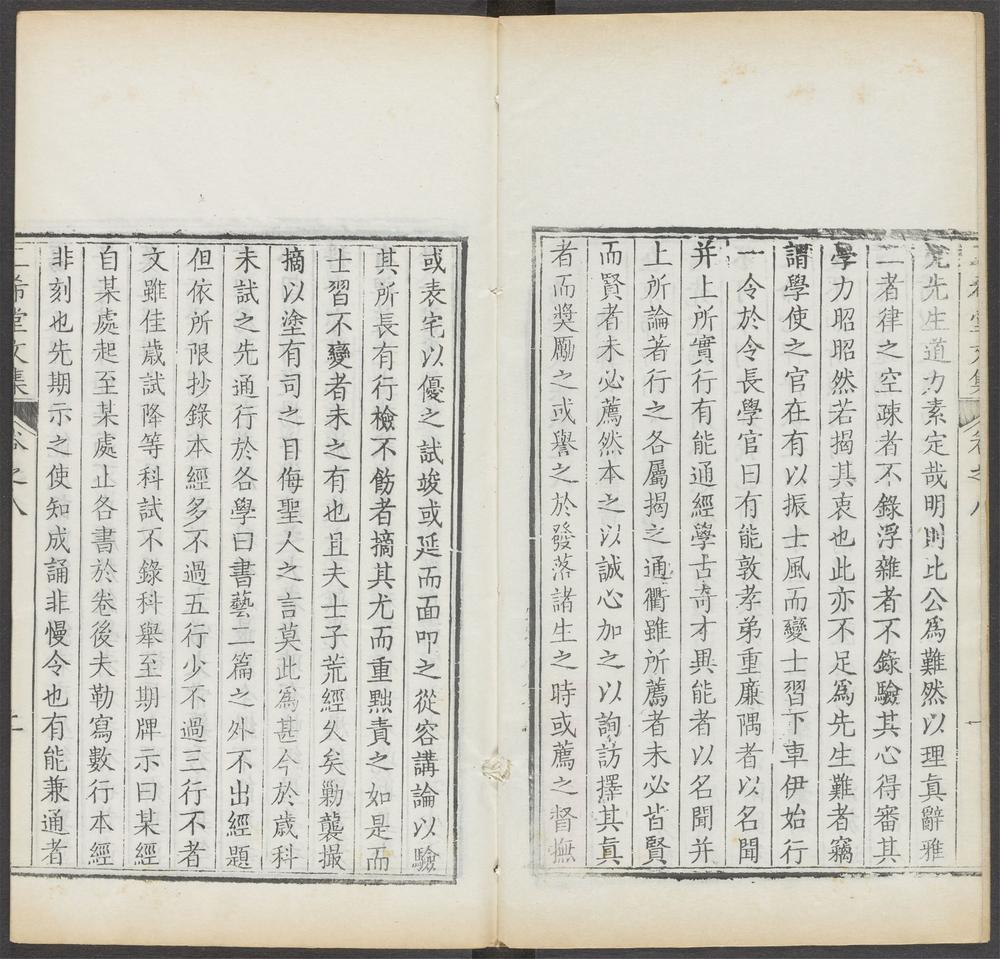 二希堂文集 卷之八 一
先生道力素定哉明則比公爲難然以理真辭雅
二者律之空疎者不錄浮雜者不錄驗其心得審其
學力昭昭然若揭其衷也此亦不足爲先生難者竊
謂學使之官在有以振士風而變士習下車伊始行
一令於令長學官曰有能敦孝弟重廉隅者以名聞
并上所實行有能通經學古奇才異能者以名聞并
上所論著行之各屬揭之通衢雖所薦者未必皆賢
而賢者未必薦然本之以誠心加之以詢訪擇其眞
者而奬厲之或譽之於發落諸生之時或薦之督撫
或表宅以優之試竣或延而面叩之從容講論以驗
其所長有行檢不飭者摘其尤而重黜責之如是而
士習不變者未之有也且夫士子荒經久矣勦襲撮
摘以塗有司之目侮聖人之言莫此爲甚今於歲科
未試之先通行於各學曰書藝二篇之外不出經題
但依所限抄錄本經多不過五行少不過三行不者
文雖佳歲試降等科試不錄科舉至期牌示曰某經
自某處起至某處止各書於卷後夫勒寫數行本經
非刻也先期示之使知成誦非慢令也有能兼通者
二希堂文集 卷之八 二